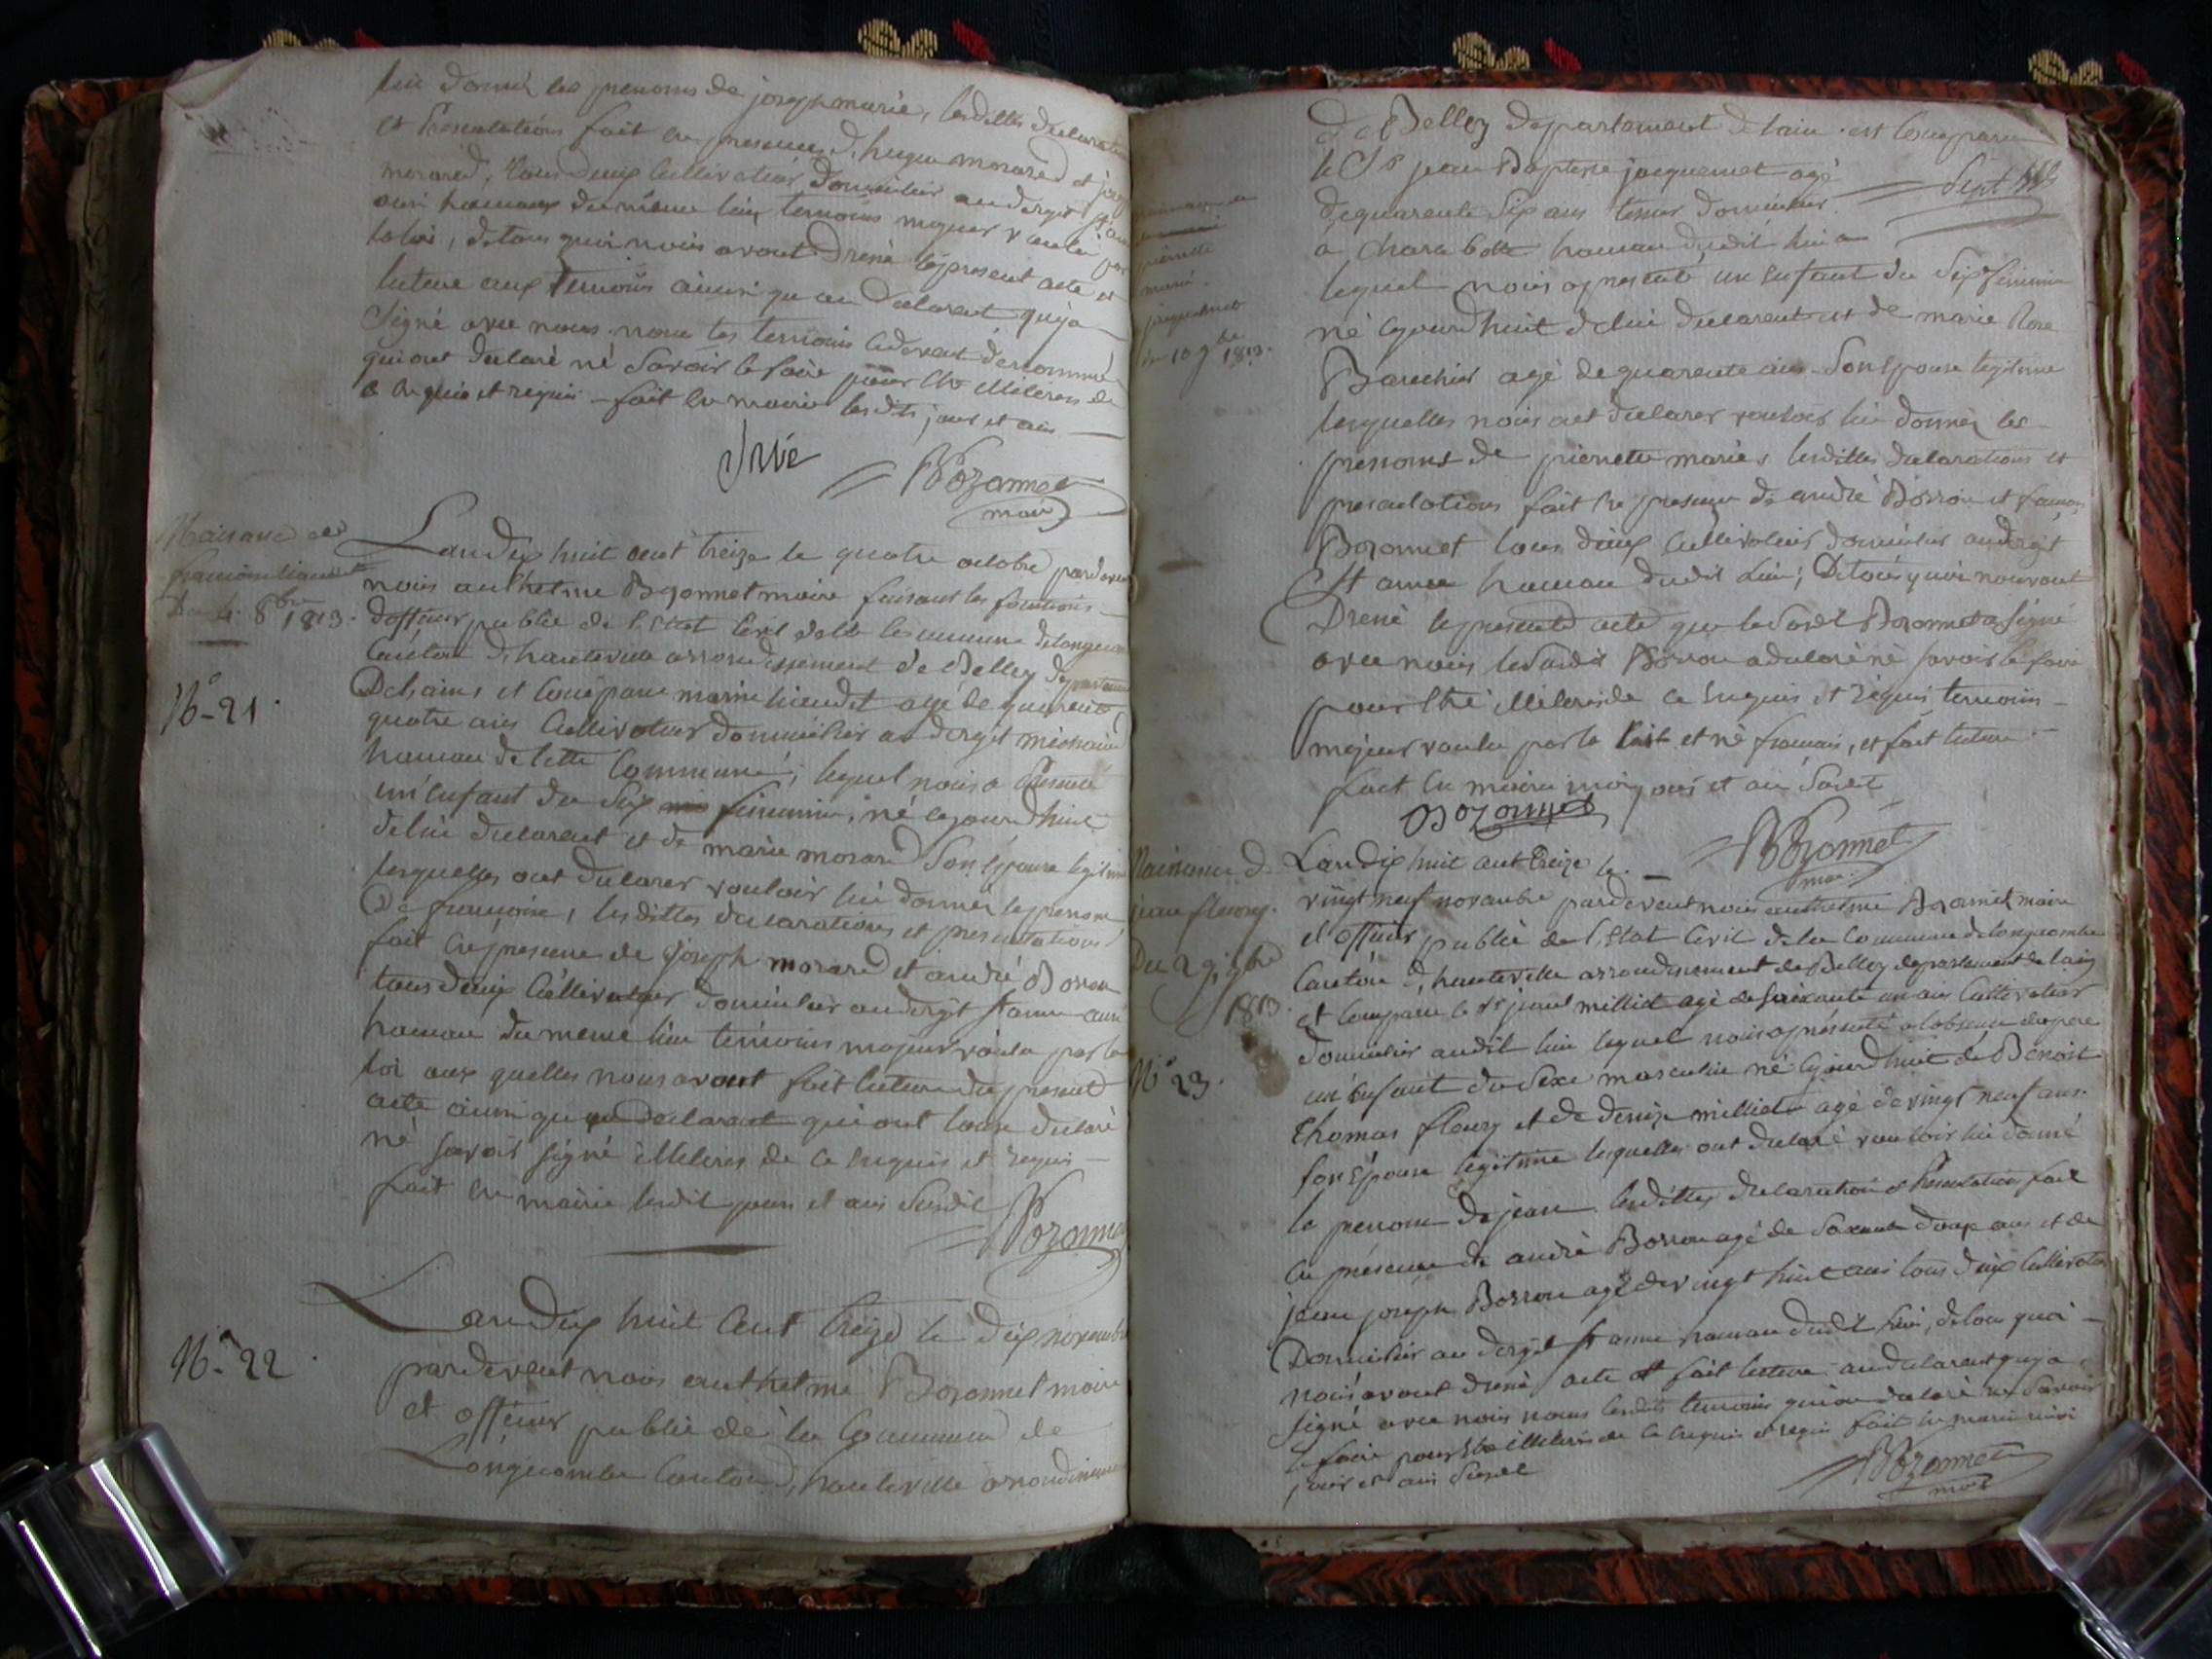 lui donné les prenoms de joseph marie, lesdittes declarations
et Presentations fait en presence d, hugue morard et
morard, tous deux Cultivateur domicilier au derget St anne
ausi hameaux du même lieu temoins majeur voulu par
la loi, de tous quoi nous avont Dressé le present acte et
lecture aux temoins ainsi qu au declarent qui ja
Signé avec nous. non les temoins cidevent denommé
qui ont declaré né Savoir le faire pour être illeteres de
ce enquis et requis – fait en mairie lesdits jour et ans
Jrvé
Bozonnet
maire
Naissance de
francoise liaudet
du 4. 8bre 1813.
N°- 21
Landix huit cent treize le quatre octobre pardevent
nous anthelme Bozonnet maire faisant les fonctions
dofficier publie de l, Etat Civil de la Commune de longecombe
Canton d, hauteville arrondissement de Belley departement
Delains et Comparu marin liaudet agé de quarente
quatre ans Cultivateur domicilier au derget
hameau de cette Commune, lequel nous a Presenté
un enfant du Sex feminin, né cejourdhuit
delui declarent et de marie morard Son Epouse legitime
lesquelles ont declarer vouloir lui donner le prenom
De francoise, lesdittes declarations et presentations
fait en presence de Joseph morard et andré Borron
tous deux Cultivateur domicilier au derget St anne ausi
hameau du meme lieu temoins majeur voulu par la
loi aux quelles nous avont fait lecture du present
acte ainsi qu au declarent qui ont tous declaré
né savoir signé illeteres de ce enquis et requis –
fait en mairie lesdit jours et ans Susdit
Bozonnet
N°- 22
Landix huit Cent treize le dix novembre
pardevent nous anthelme Bozonnet maire
et officier publie de la Commune de
Longecombe Canton d, hauteville arondissement
de Belley departement de lain. est Comparu
le Sr jean Baptiste jacquemet agé
dequarente Six ans domicilier
a Charabotte hameau dudit lieu
lequel nous apresenté un Enfant du Sex feminin
né cejourdhuit delui declarent et de marie Rose
agé dequarente ans Son Epouse legitime
lesquelles nous ont declarer vouloir lui donner les
prenoms de pierrette marie, lesdittes declarations et
presentations fait en presence de andré Borron et
Bozonnet tous deux Cultivateurs domicilier au derget
St anne hameau dudit Lieu; De tous quoi nous avont
Dressé le present acte que le Susdt Bozonnet a Signé
avec nous le Susdit Borron a declaré né savoir le faire
pour être illeteres de ce enquis et requis temoins –
majeur voulu par la loi et né francais, et fait lecture
fait en mairie jour et an Susdt
Bozonnet
Bozonnet
mre.
pierrette
marie
jacquemet
du 10 9bre 1813.
Naissance d
jean fleury.
Du 29 9bre
1813.
N° 23.
Landix huit cent treize le –
vingt neuf novembre pardevent nous anthelme Bozonnet maire
et officier publie de l, Etat Civil de la Commune de longecombe
Canton d, hauteville arrondissement de Belley departement de lain
et Comparu le Sr paul milliet agé de soixante un ans Cultivateur
domicilier audit lieu lequel nous apresenté a labsence du pere
un Enfant du Sexe masculin né cejourdhuit de Benoit
thomas fleury et de denize milliet agé de vingt neuf ans
son Epouse legitime lesquelles ont declaré vouloir lui donné
le prenom de jean lesdittes declaration et Presentation fait
en presence de andré Borron agé de Soixente Douze ans et de
jean joseph Borron agé de vingt huit ans tous deux Cultivateur
Domicilier au derget St anne hameau dudit lieu, de tous quoi –
nous avont dressé acte et fait lecture au declarent qui ja
signé avec nous nons lesdits temoins qui on declaré ne Savoir
le faire pour être illeteres de ce enquis et requis fait en mairie
jour et ans Susdt
Bozonnet
mre